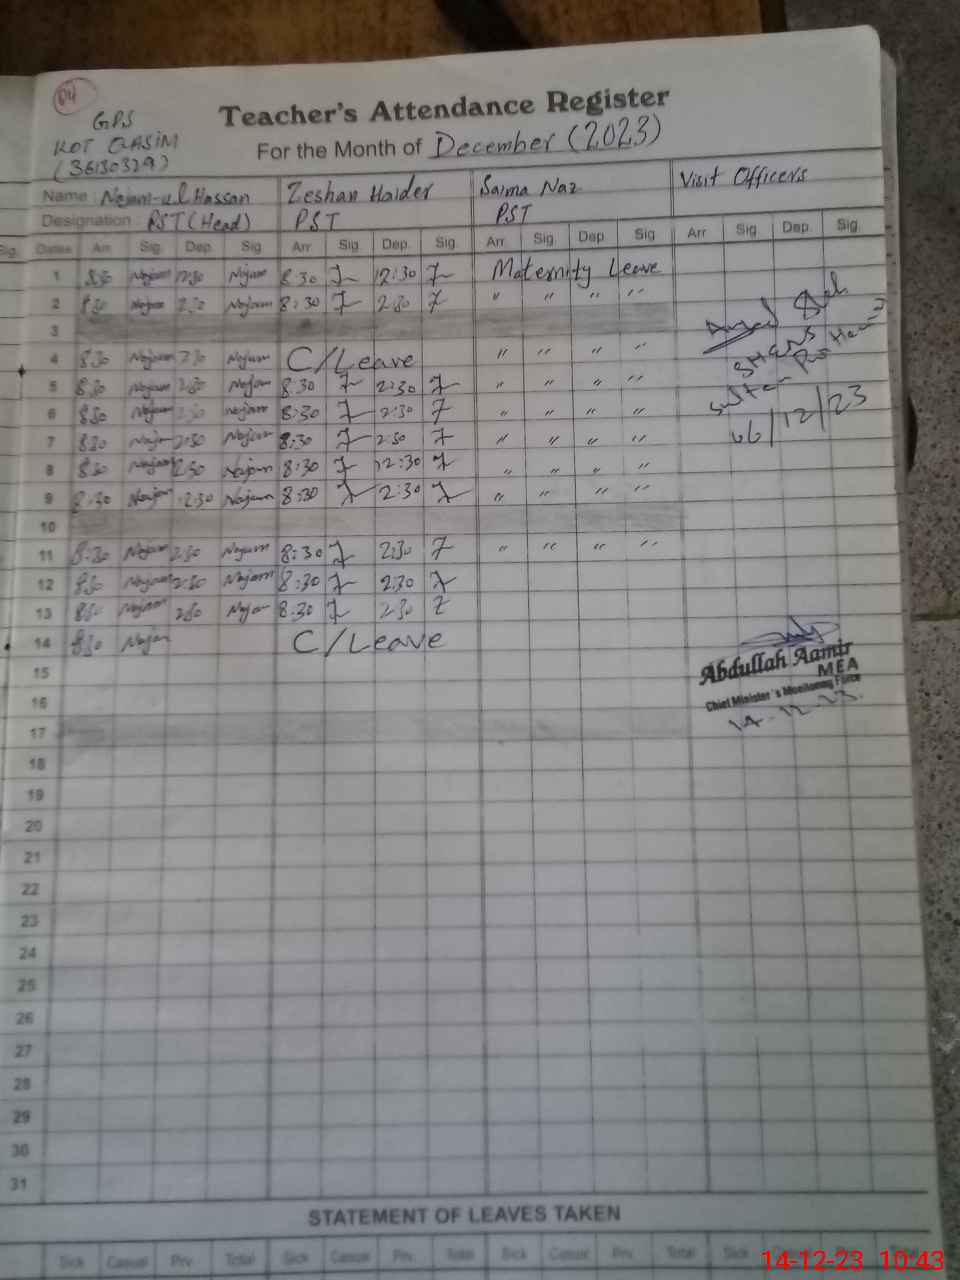 04
GPS
KOT QASIM
(36130329)
Teacher's Attendance Register
For the Month of December (2023)
Name: Najam-ul Hassan Zeshan Haider Saima Naz Visit Officers
Designation: PST (Head) PST PST
Sig. Dates Arr Sig. Dep. Sig Arr. Sig. Dep. Sig. Arr. Sig Dep Sig Arr. Sig. Dep. Sig.
1 8:30 Najam 12:30 Najam 8:30 12:30 Maternity Leave
2 8:30 Najam 2:30 Najam 8:30 2:30 " " " "
3
4 8:30 Najam 2:30 Najam C/Leave " " " "
5 8:30 Najam 2:30 Najam 8:30 2:30 " " " "
6 8:30 Najam 2:30 Najam 8:30 2:30 " " " "
7 8:30 Najam 2:30 Najam 8:30 2:30 " " " "
06/12/23
8 8:30 Najam 12:30 Najam 8:30 12:30 " " " "
9 8:30 Najam 2:30 Najam 8:30 2:30 " " " "
10
11 8:30 Najam 2:30 Najam 8:30 2:30 " " " "
12 8:30 Najam 2:30 Najam 8:30 2:30
13 8:30 Najam 2:30 Najam 8:30 2:30
14 8:30 Najam C/Leave
15
Abdullah Aamir
MEA
16
Chief Minister's Monitoring Force
14-12-23.
17
18
19
20
21
22
23
24
25
26
27
28
29
30
31
STATEMENT OF LEAVES TAKEN
Sick Casual Prv. Total Sick Casual Prv. Total Sick Casual Prv. Total Sick
14-12-23 10:43